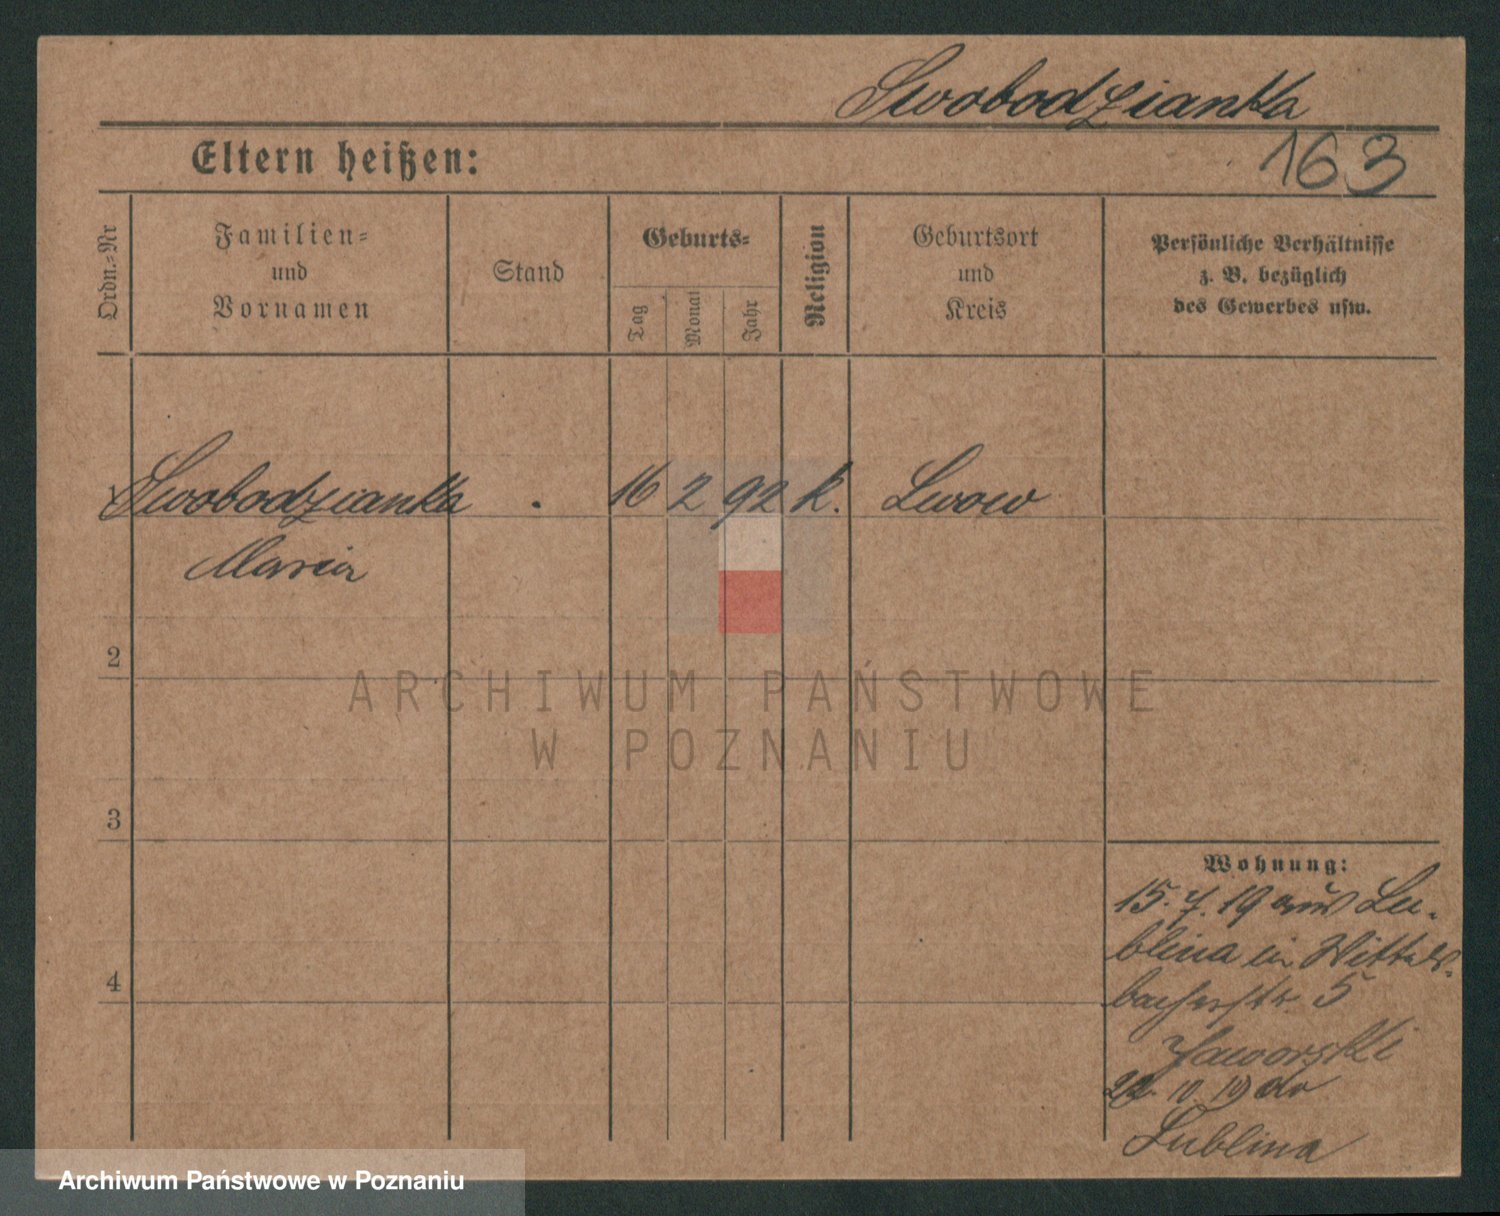 Swobodzianka
Eltern heißen:
163
Ordn.-Nr
Familien-
und
Vornamen
Stand
Geburts-
Tag
Monat
Jahr
Religion
Geburtsort
und
Kreis
Persönliche Verhältnisse
z. B. bezüglich
des Gewerbes usw.
1 Swobodzianka . 16 2 92 k. Lwow
Maria
2
ARCHIWUM PAŃSTWOWE
W POZNANIU
3
Wohnung:
15. 7. 19 aus Lu-
blina in Wittels-
bacherstr. 5
Jaworski
22. 10. 19 do
Lublina
4
Archiwum Państwowe w Poznaniu